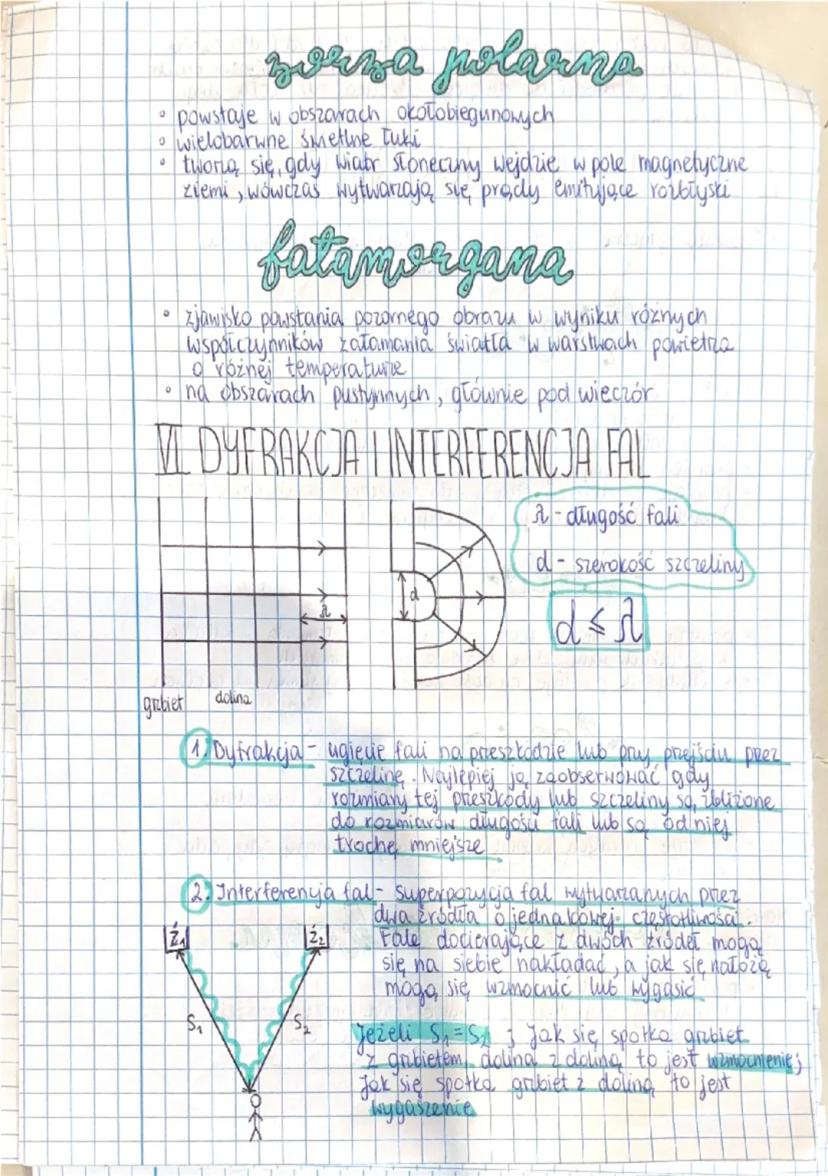 zorza polarna
• powstaje w obszarach okołobiegunowych
• wielobarwne świetlne łuki
• tworzą się, gdy wiatr słoneczny wejdzie w pole magnetyczne
ziemi, wówczas wytwarzają się prądy emitujące rozbłyski
fatamorgana
• zjawisko powstania pozornego obrazu w wyniku różnych
współczynników załamania światła w warstwach powietrza
o różnej temperaturze
• na obszarach pustynnych, głównie pod wieczór
VI DYFRAKCJA I INTERFERENCJA FAL
λ - długość fali
d - szerokość szczeliny
d ≤ λ
λ
d
grzbiet dolina
1. Dyfrakcja - ugięcie fali na przeszkodzie lub przy przejściu przez
szczelinę. Najlepiej ją zaobserwować gdy
rozmiary tej przeszkody lub szczeliny są zbliżone
do rozmiarów długości fali lub są od niej
trochę mniejsze
2. Interferencja fal - superpozycja fal wytwarzanych przez
dwa źródła o jednakowej częstotliwości.
Fale docierające z dwóch źródeł mogą
się na siebie nakładać, a jak się nałożą
mogą się wzmocnić lub wygasić
Ź1 Ź2
S1 S2
Jeżeli S1 = S2 ; Jak się spotka grzbiet
z grzbietem, dolina z doliną to jest wzmocnienie;
jak się spotka grzbiet z doliną to jest
wygaszenie